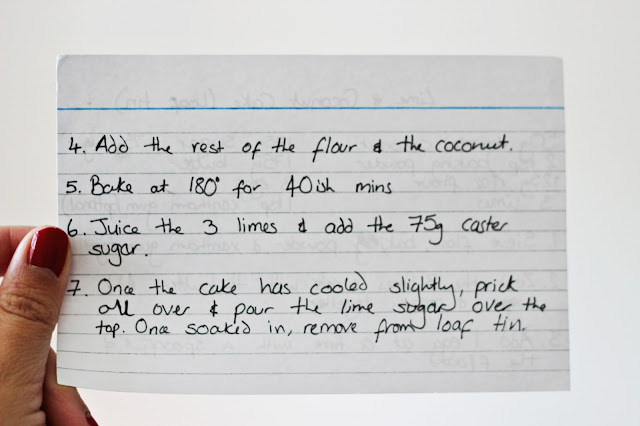 4. Add the rest of the flour & the coconut.
5. Bake at 180° for 40ish mins
6. Juice the 3 limes & add the 75g caster
sugar.
7. Once the cake has cooled slightly, prick
all over & pour the lime sugar over the
top. Once soaked in, remove from loaf tin.